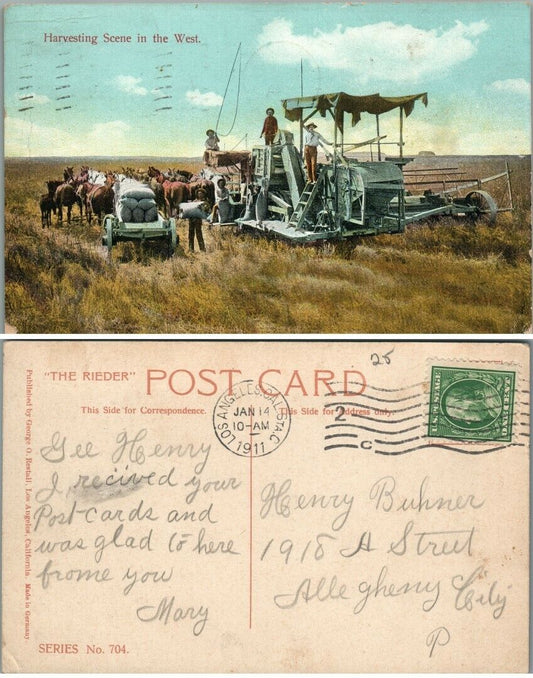 Harvesting Scene in the West.
25
"THE RIEDER" POST CARD
This Side for Correspondence. This Side for Address only.
U.S. POSTAGE
LOS ANGELES, CAL. STA. C
JAN 14
10-AM
1911
2
C
Gee Henry
I recived your
Postcards and
was glad to here
frome you
Mary
Henry Buhner
1918 A Street
Allegheny City
P
SERIES No. 704.
Published by George O. Restall, Los Angeles, California. Made in Germany.